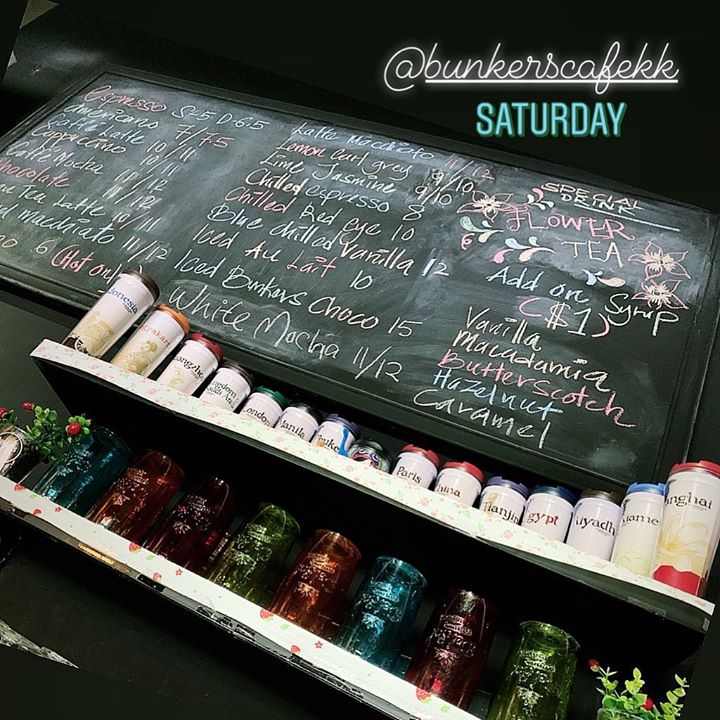 @bunkerscafekk
SATURDAY
Espresso S-5 D-6.5
Americano 7/7.5
Caffe Latte 10/11
Cappuccino 10/11
Caffe Mocha 11/12
Chocolate 11/12
Tea Latte 10/11
macchiato 11/12
6 (Hot on
Latte Macchiato 11/12
Lemon earl grey 9/10
Lime Jasmine 9/10
Chilled espresso 8
Chilled Red eye 10
Blue chilled Vanilla 12
Iced Au Lait 10
Iced Bunkers Choco 15
White Mocha 11/12
SPECIAL
DRINK
FLOWER
TEA
Add on Syrup
($1)
Vanilla
Macadamia
Butterscotch
Hazelnut
Caramel
London
Paris
Tianjin